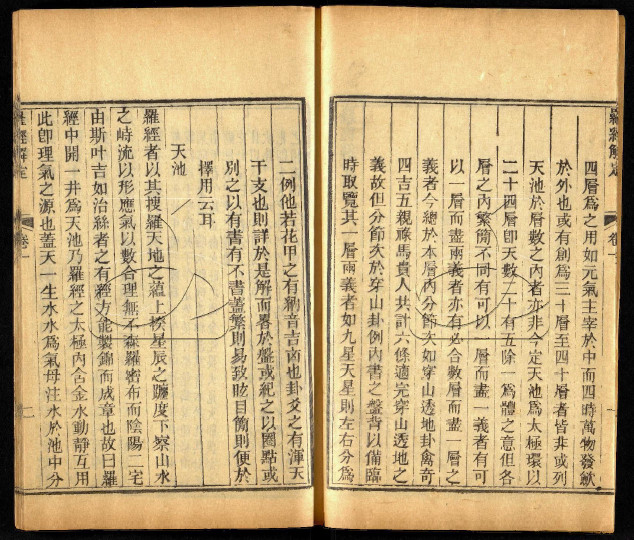 羅經解定
卷一
四層爲之用如元氣主宰於中而四時萬物發歛
於外也或有創爲三十層至四十層者皆非或列
天池於層數之內者亦非今定天池爲太極環以
二十四層卽天數二十有五除一爲體之意但各
層之內繁簡不同有可以一層而盡一義者有可
以一層而盡兩義者亦有必合數層而盡一層之
義者今總於本層內分節次如穿山透地卦禽奇
四吉五親祿馬貴人共計六條適完穿山透地之
義故但分節次於穿山卦例內書之盤背以備臨
時取覽其一層兩義者如九星天星則左右分爲
二例他若花甲之有納音吉凶也卦爻之有渾天
干支也則詳於是解而畧於盤或紀之以圈點或
別之以有書有不書蓋繁則易致眩目簡則便於
擇用云耳
天池
羅經者以其搜羅天地之蘊上揆星辰之躔度下察山水
之峙流以形應氣以數合理無不森羅密布而陰陽二宅
由斯叶吉如治絲者之有經方能製錦而成章也故曰羅
經中開一井爲天池乃羅經之太極內含金水動靜互用
此卽理氣之源也蓋天一生水水爲氣母注水於池中分
羅經解定
卷一
二